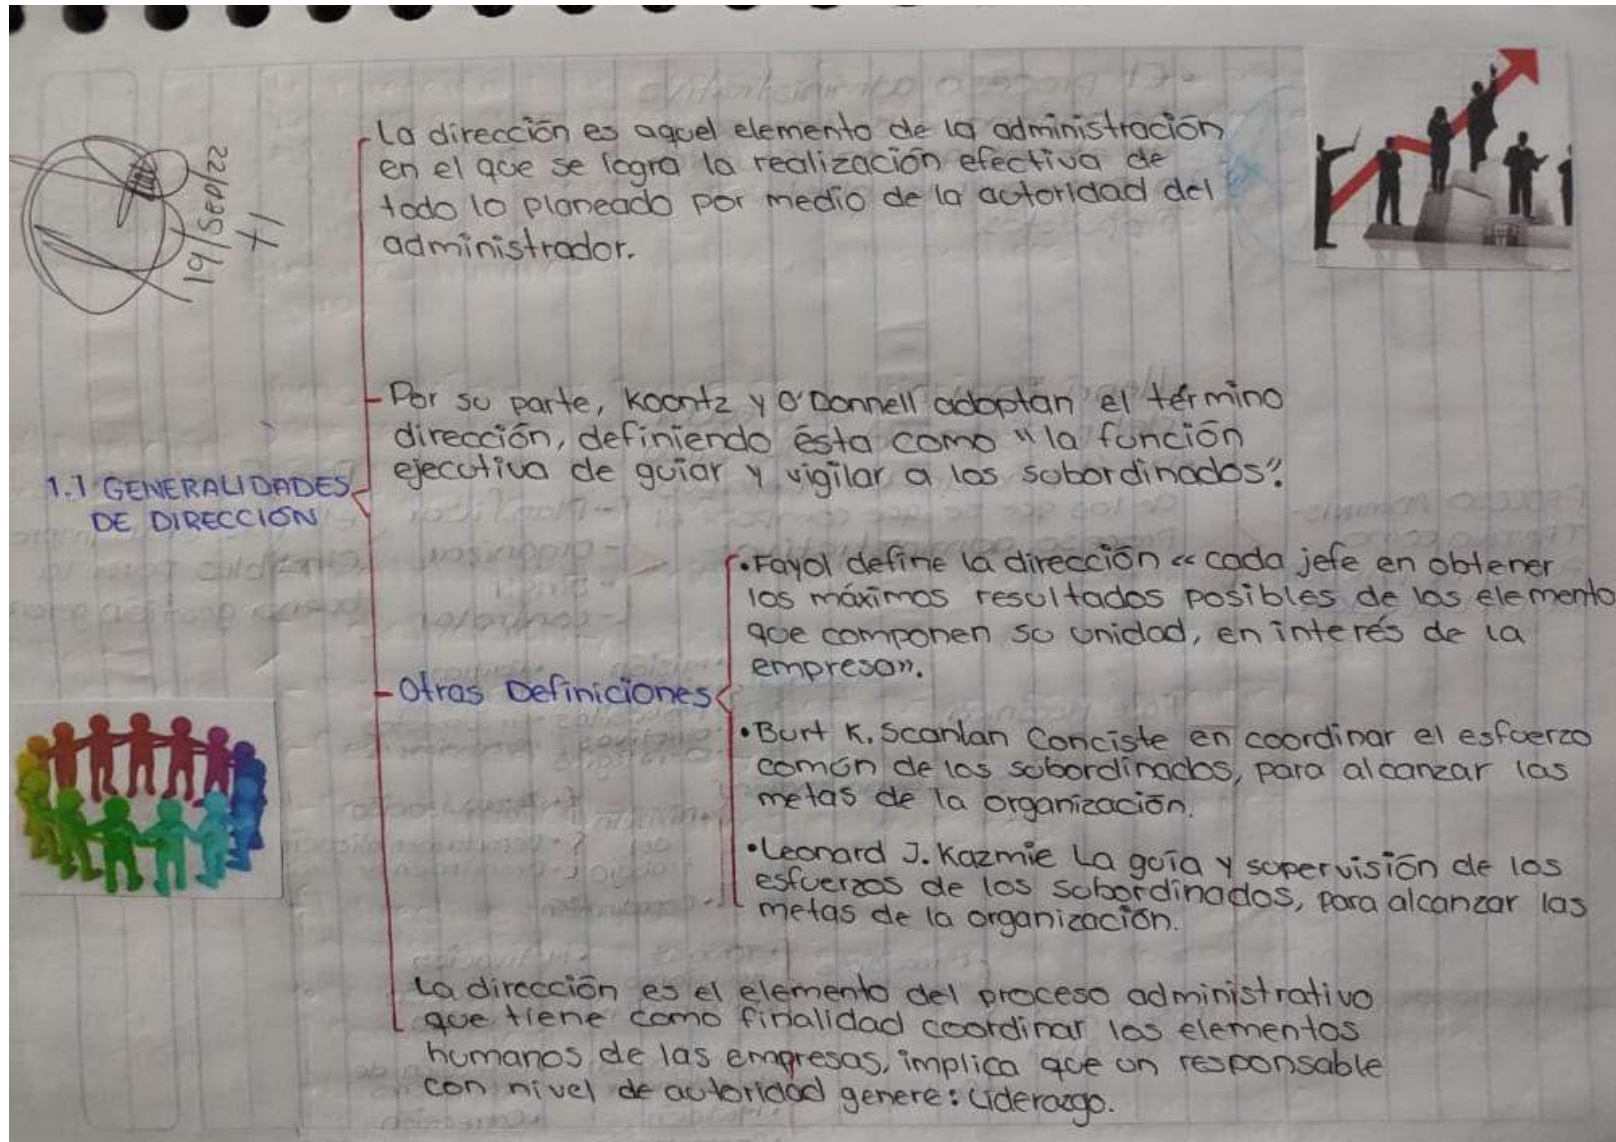 19/Sep/22
+1
La dirección es aquel elemento de la administración
en el que se logra la realización efectiva de
todo lo planeado por medio de la autoridad del
administrador.
Por su parte, Koontz y O'Donnell adoptan el término
dirección, definiendo ésta como "la función
ejecutiva de guiar y vigilar a los subordinados".
1.1 GENERALIDADES
DE DIRECCIÓN
Otras Definiciones
•Fayol define la dirección «cada jefe en obtener
los máximos resultados posibles de los elemento
que componen su unidad, en interés de la
empresa».
•Burt K. Scanlan Conciste en coordinar el esfuerzo
común de los subordinados, para alcanzar las
metas de la organización.
•Leonard J. Kazmie La guía y supervisión de los
esfuerzos de los subordinados, para alcanzar las
metas de la organización.
La dirección es el elemento del proceso administrativo
que tiene como finalidad coordinar los elementos
humanos de las empresas, implica que un responsable
con nivel de autoridad genere: Liderazgo.